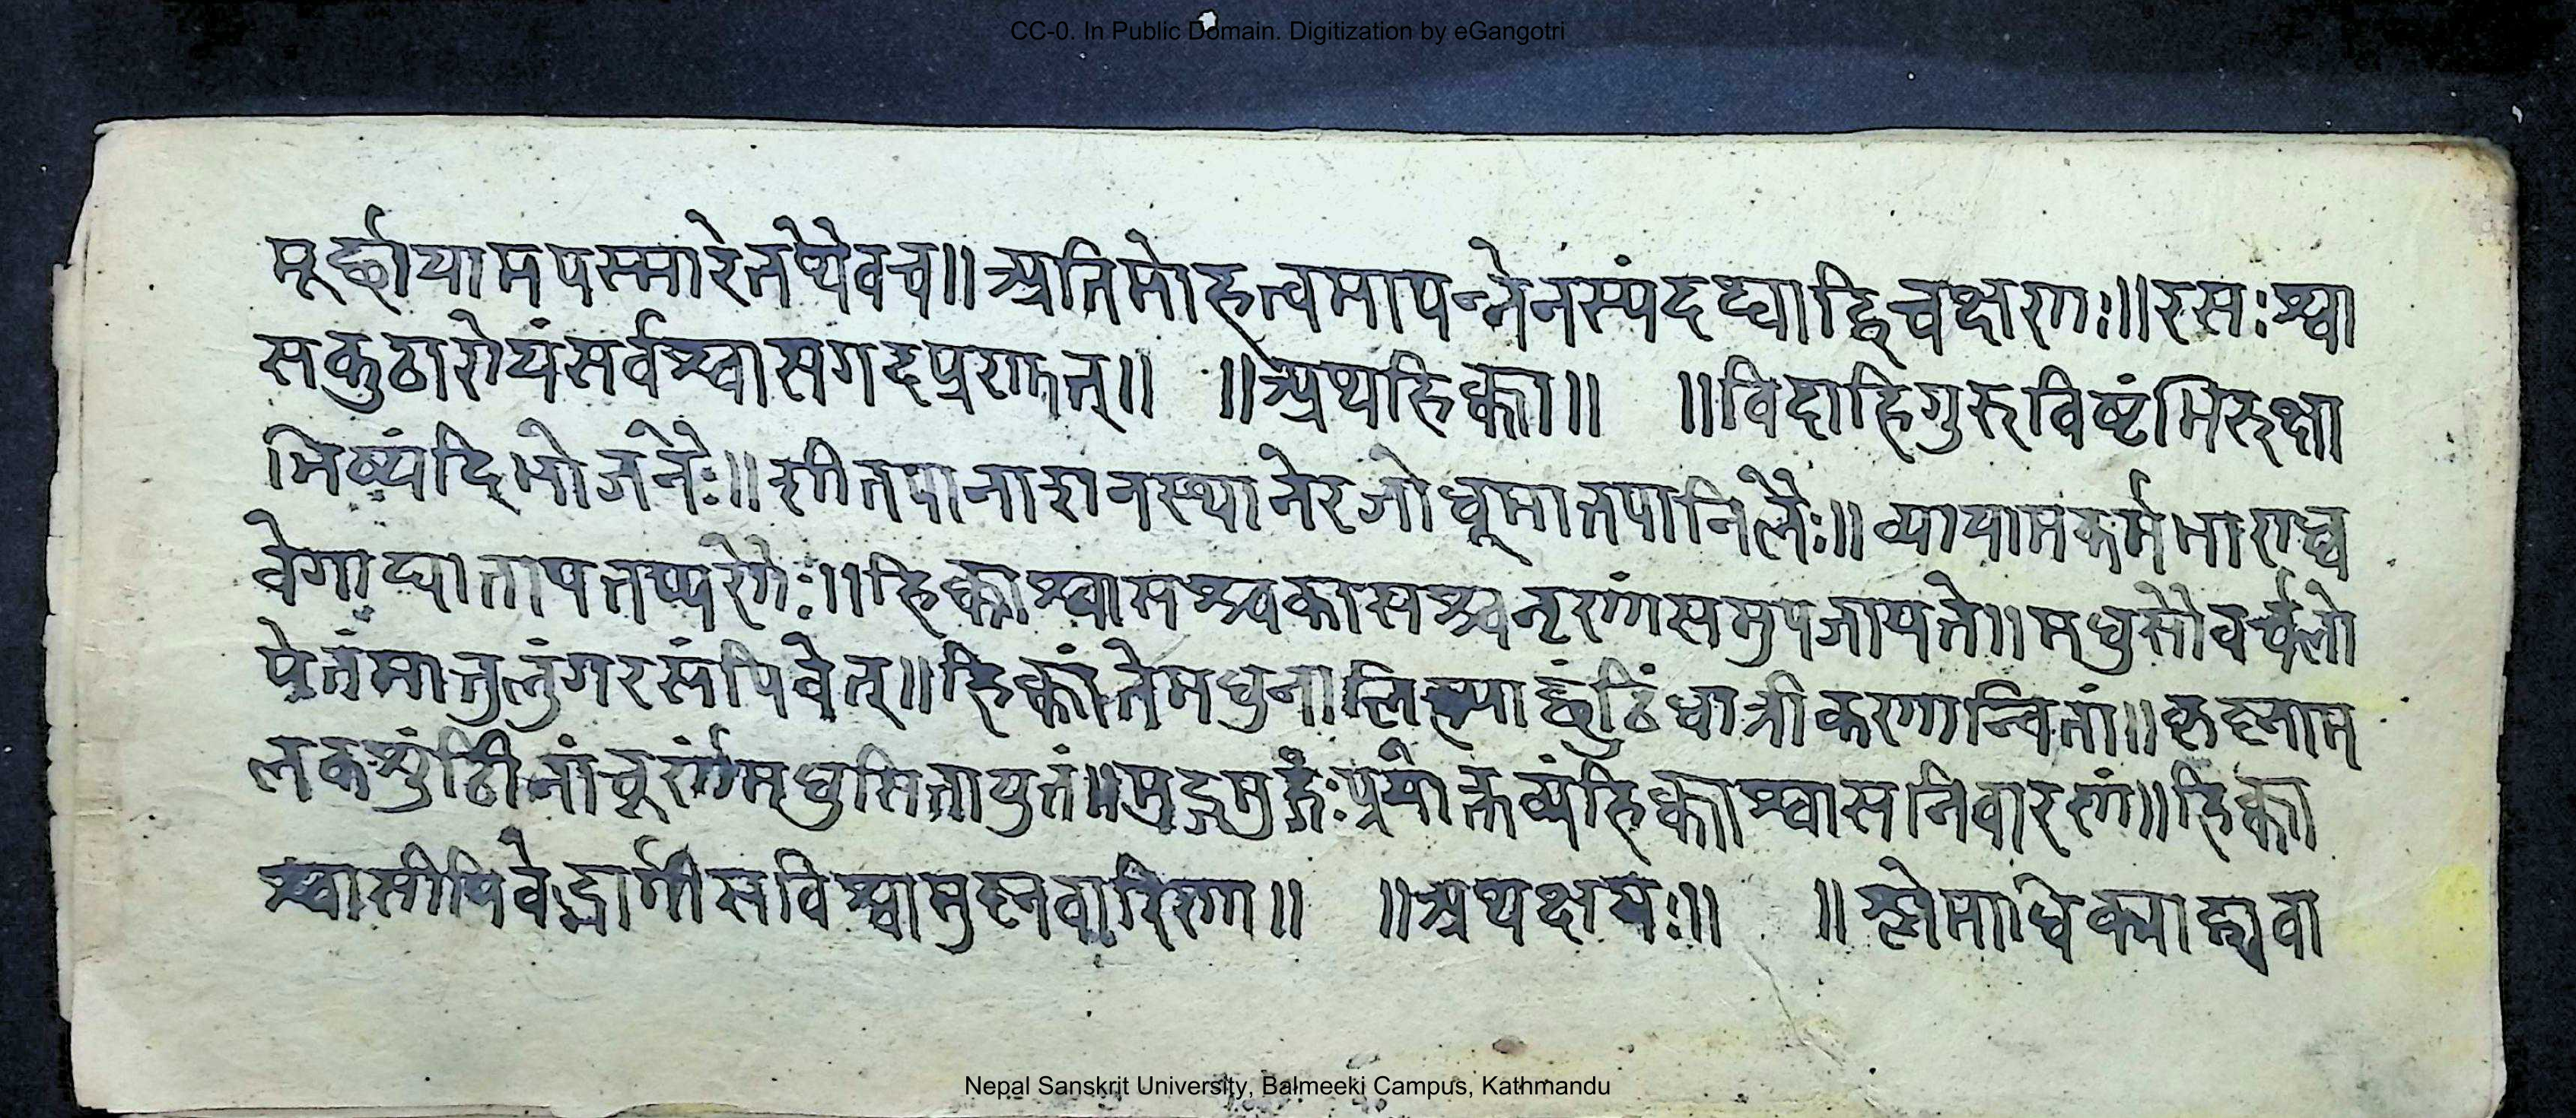 CC-0. In Public Domain. Digitization by eGangotri
मूर्छायामपस्मारेतथैवच॥अतिमोहत्वमापन्नेनस्यंदद्याद्विचक्षणः॥रसःश्वा
सकुठारोयंसर्वश्वासगदप्रणुत्॥ ॥अथहिक्का॥ ॥विदाहिगुरुविष्टंभिरुक्षा
भिष्यंदिभोजनैः॥शीतपानाशनस्थानेरजोधूमातपानिलैः॥व्यायामकर्मभाराध्व
वेगाघातापतर्प्पणैः॥हिक्काश्वासश्चकासश्चनृणांसमुपजायते॥मधुसौवर्चलो
पेतंमातुलुंगरसंपिवेत्॥हिक्कार्तेमधुनालिह्याछुंठिंधात्रीकणान्वितां॥कृष्णाम
लकशुंठीनांचूर्णंमधुसितायुतं॥मुहुर्मुहुःप्रयोक्तव्यंहिक्काश्वासनिवारणं॥हिक्का
श्वासीपिवेद्भार्गीसविश्वामुष्णवारिणा॥ ॥अथक्षयः॥
Nepal Sanskrit University, Balmeeki Campus, Kathmandu